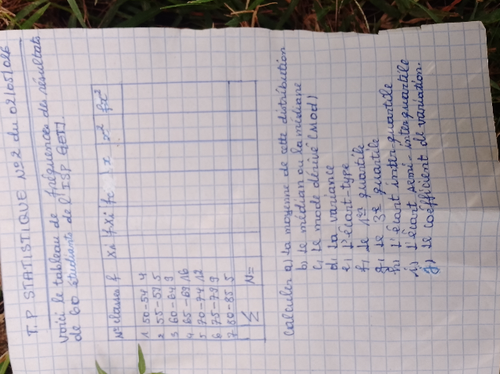 T.P STATISTIQUE N°2 du 02/05/026
Voici le tableau de fréquences de résultats
de 60 étudiants de l'ISP
N° classe f Xi fXi fc x x² fx²
1 50-54 4
2 55-59 5
3 60-64 9
4 65-69 16
5 70-74 12
6 75-79 9
7 80-85 5
Σ N=
Calculer a) La moyenne de cette distribution
b. Le médian ou la médiane
c, Le mode dérivé (Mod)
d. La variance
e, L'écart-type
f, Le 1er quartile
g, Le 3e quartile
h, L'écart interquartile
i, L'écart semi-interquartile
j, Le coéfficient de variation.